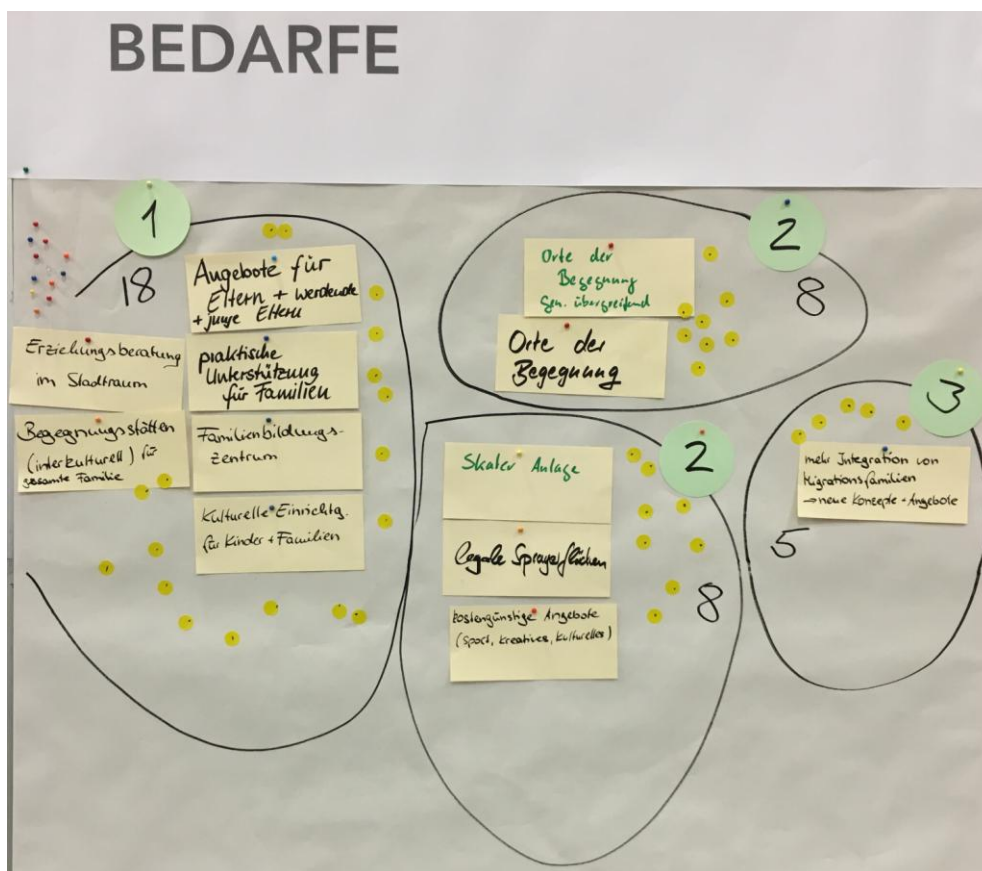 BEDARFE
1
18
Angebote für
Eltern + werdende
+ junge Eltern
Erziehungsberatung
im Stadtraum
praktische
Unterstützung
für Familien
Begegnungsstätten
(interkulturell) für
gesamte Familie
Familienbildungs-
zentrum
Kulturelle Einrichtg.
für Kinder + Familien
2
8
Orte der
Begegnung
Gen. übergreifend
Orte der
Begegnung
2
8
Skater Anlage
legale Sprayerflächen
kostengünstige Angebote
(Sport, kreatives, kulturelles)
3
5
mehr Integration von
Migrationsfamilien
→ neue Konzepte + Angebote